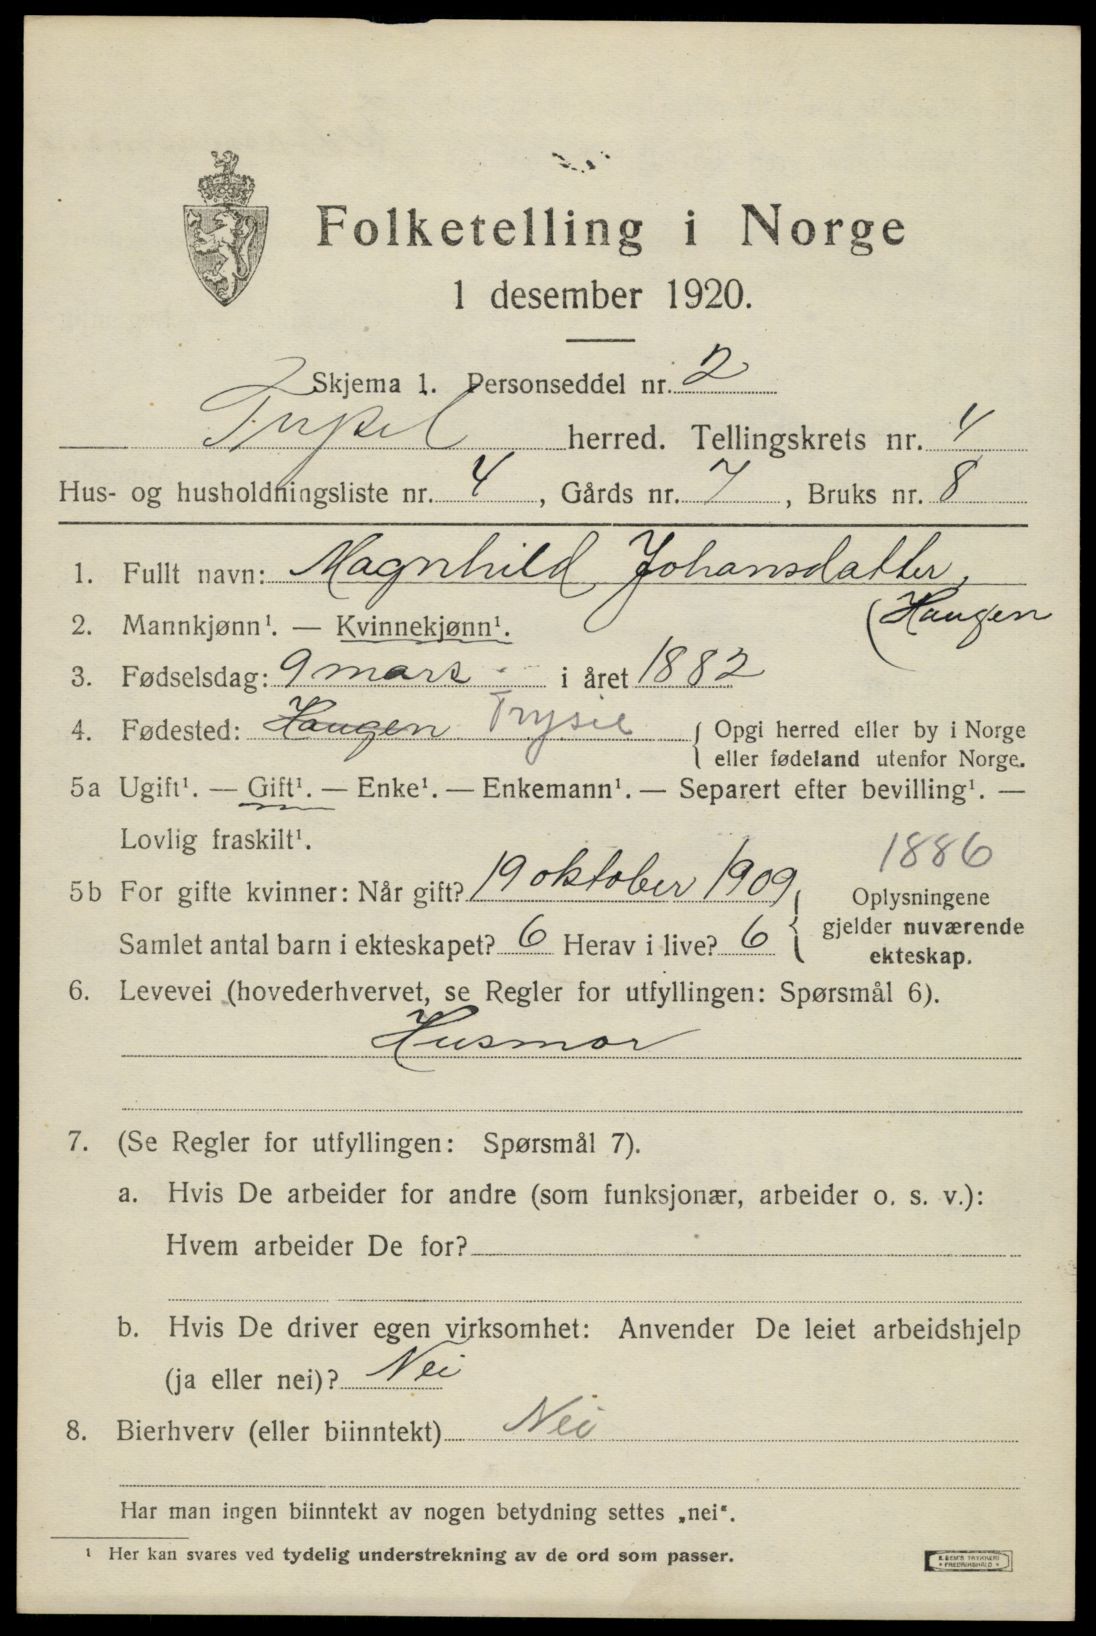 Folketelling i Norge
1 desember 1920.
Skjema 1. Personseddel nr. 2
Trysil herred. Tellingskrets nr. 4
Hus- og husholdningsliste nr. 4, Gårds nr. 7, Bruks nr. 8
1. Fullt navn: Magnhild Johansdatter,
(Haugen
2. Mannkjønn¹. — Kvinnekjønn¹.
3. Fødselsdag: 9 mars i året 1882
4. Fødested: Haugen Trysil { Opgi herred eller by i Norge
eller fødeland utenfor Norge.
5a Ugift¹. — Gift¹. — Enke¹. — Enkemann¹. — Separert efter bevilling¹. —
Lovlig fraskilt¹.
1886
5b For gifte kvinner: Når gift? 19 oktober 1909,
Samlet antal barn i ekteskapet? 6 Herav i live? 6
{ Oplysningene
gjelder nuværende
ekteskap.
6. Levevei (hovederhvervet, se Regler for utfyllingen: Spørsmål 6).
Husmor
7. (Se Regler for utfyllingen: Spørsmål 7).
a. Hvis De arbeider for andre (som funksjonær, arbeider o. s. v.):
Hvem arbeider De for?
b. Hvis De driver egen virksomhet: Anvender De leiet arbeidshjelp
(ja eller nei)? Nei
8. Bierhverv (eller biinntekt) Nei
Har man ingen biinntekt av nogen betydning settes „nei“.
¹ Her kan svares ved tydelig understrekning av de ord som passer.
TRYKKERI
FREDRIKSHALD